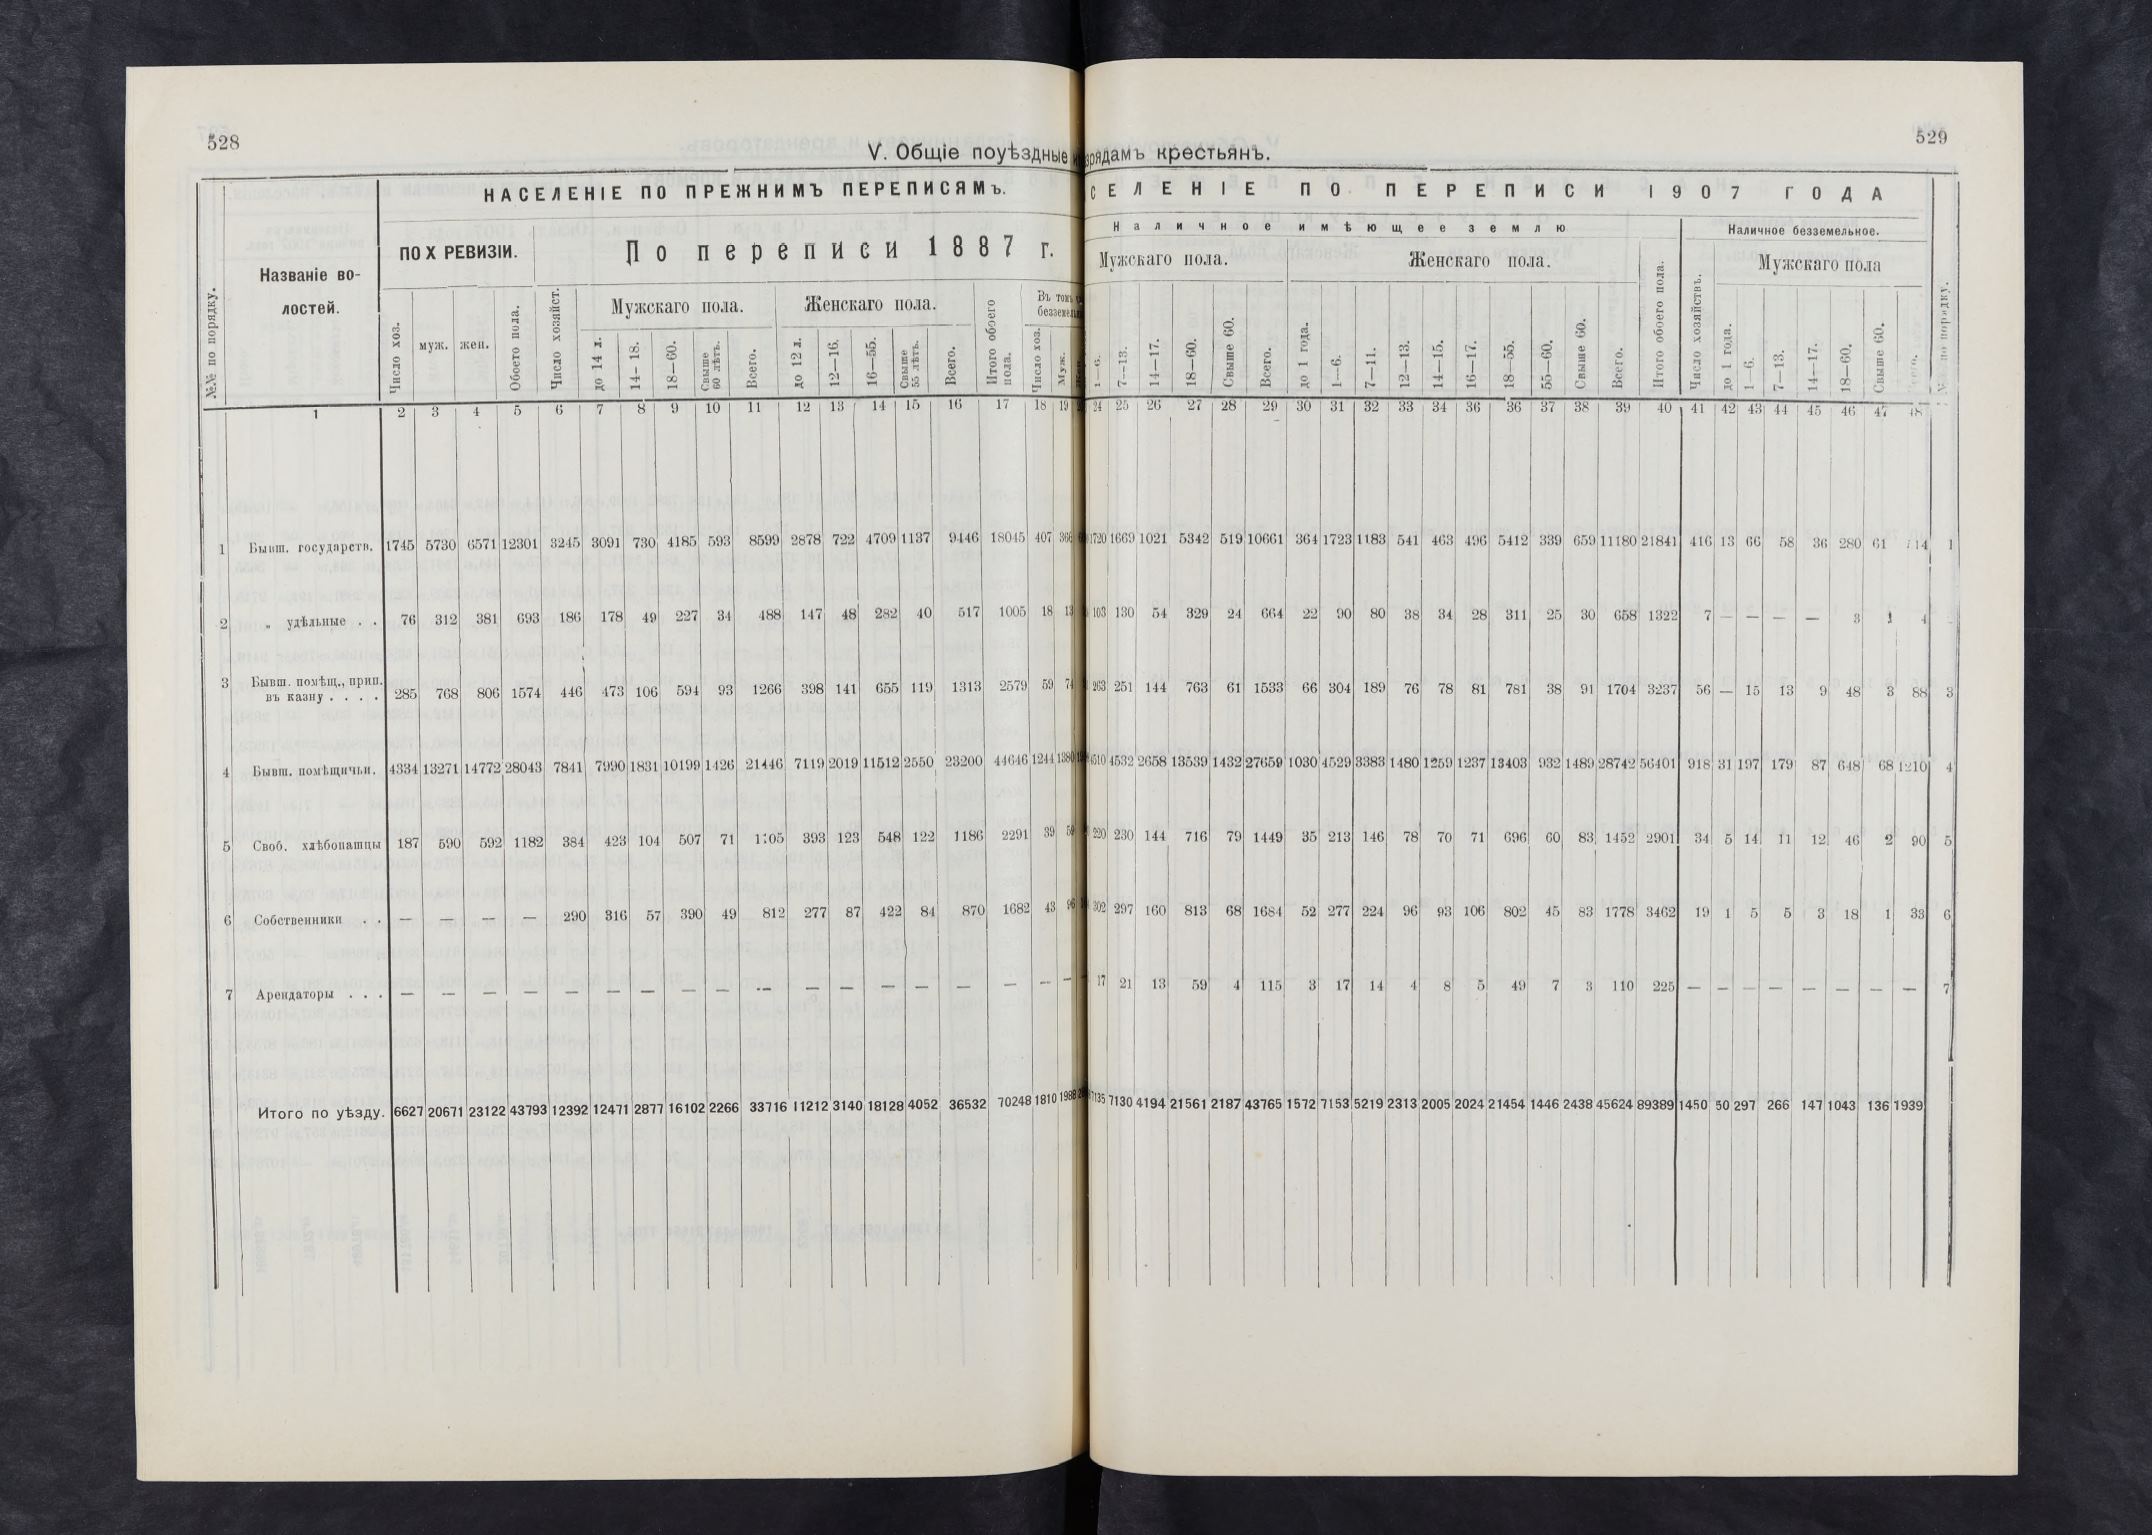 528
529
V. Общіе поуѣздные
рядамъ крестьянъ.
№№ по порядку.
Названіе во-
лостей.
НАСЕЛЕНІЕ ПО ПРЕЖНИМЪ ПЕРЕПИСЯМЪ.
ПО X РЕВИЗІИ.
По переписи 1887 г.
Число хоз.
муж.
жен.
Обоего пола.
Число хозяйст.
Мужскаго пола.
до 14 л.
14—18.
18—60.
Свыше 60 лѣтъ.
Всего.
Женскаго пола.
до 12 л.
12—16.
16—55.
Свыше 55 лѣтъ.
Всего.
Итого обоего пола.
Въ томъ
безземель
Число хоз.
Муж.
СЕЛЕНІЕ ПО ПЕРЕПИСИ 1907 ГОДА
Наличное имѣющее землю
Мужскаго пола.
1—6.
7—13.
14—17.
18—60.
Свыше 60.
Всего.
Женскаго пола.
до 1 года.
1—6.
7—11.
12—13.
14—15.
16—17.
18—55.
55—60.
Свыше 60.
Всего.
Итого обоего пола.
Наличное безземельное.
Число хозяйствъ.
Мужскаго пола
до 1 года.
1—6.
7—13.
14—17.
18—60.
Свыше 60.
по порядку.
1 2 3 4 5 6 7 8 9 10 11 12 13 14 15 16 17 18 19 24 25 26 27 28 29 30 31 32 33 34 36 36 37 38 39 40 41 42 43 44 45 46 47 48
1 Бывш. государств. 1745 5730 6571 12301 3245 3091 730 4185 593 8599 2878 722 4709 1137 9446 18045 407 366 1720 1669 1021 5342 519 10661 364 1723 1183 541 463 496 5412 339 659 11180 21841 416 13 66 58 36 280 61 1
2 „ удѣльные . . 76 312 381 693 186 178 49 227 34 488 147 48 282 40 517 1005 18 13 103 130 54 329 24 664 22 90 80 38 34 28 311 25 30 658 1322 7 — — — — 3 1 4
3 Бывш. помѣщ., прип.
въ казну . . . . 285 768 806 1574 446 473 106 594 93 1266 398 141 655 119 1313 2579 59 74 263 251 144 763 61 1533 66 304 189 76 78 81 781 38 91 1704 3237 56 — 15 13 9 48 3 88 3
4 Бывш. помѣщичьи. 4334 13271 14772 28043 7841 7990 1831 10199 1426 21446 7119 2019 11512 2550 23200 44646 1244 1380 4510 4532 2658 13539 1432 27659 1030 4529 3383 1480 1259 1237 13403 932 1489 28742 56401 918 31 197 179 87 648 68 1210 4
5 Своб. хлѣбопашцы 187 590 592 1182 384 423 104 507 71 1105 393 123 548 122 1186 2291 39 59 220 230 144 716 79 1449 35 213 146 78 70 71 696 60 83 1452 2901 34 5 14 11 12 46 2 90 5
6 Собственники . . — — — — 290 316 57 390 49 812 277 87 422 84 870 1682 43 96 302 297 160 813 68 1684 52 277 224 96 93 106 802 45 83 1778 3462 19 1 5 5 3 18 1 33 6
7 Арендаторы . . . — — — — — — — — — — — — — — — — — — 17 21 13 59 4 115 3 17 14 4 8 5 49 7 3 110 225 — — — — — — — — 7
Итого по уѣзду. 6627 20671 23122 43793 12392 12471 2877 16102 2266 33716 11212 3140 18128 4052 36532 70248 1810 1988 7135 7130 4194 21561 2187 43765 1572 7153 5219 2313 2005 2024 21454 1446 2438 45624 89389 1450 50 297 266 147 1043 136 1939